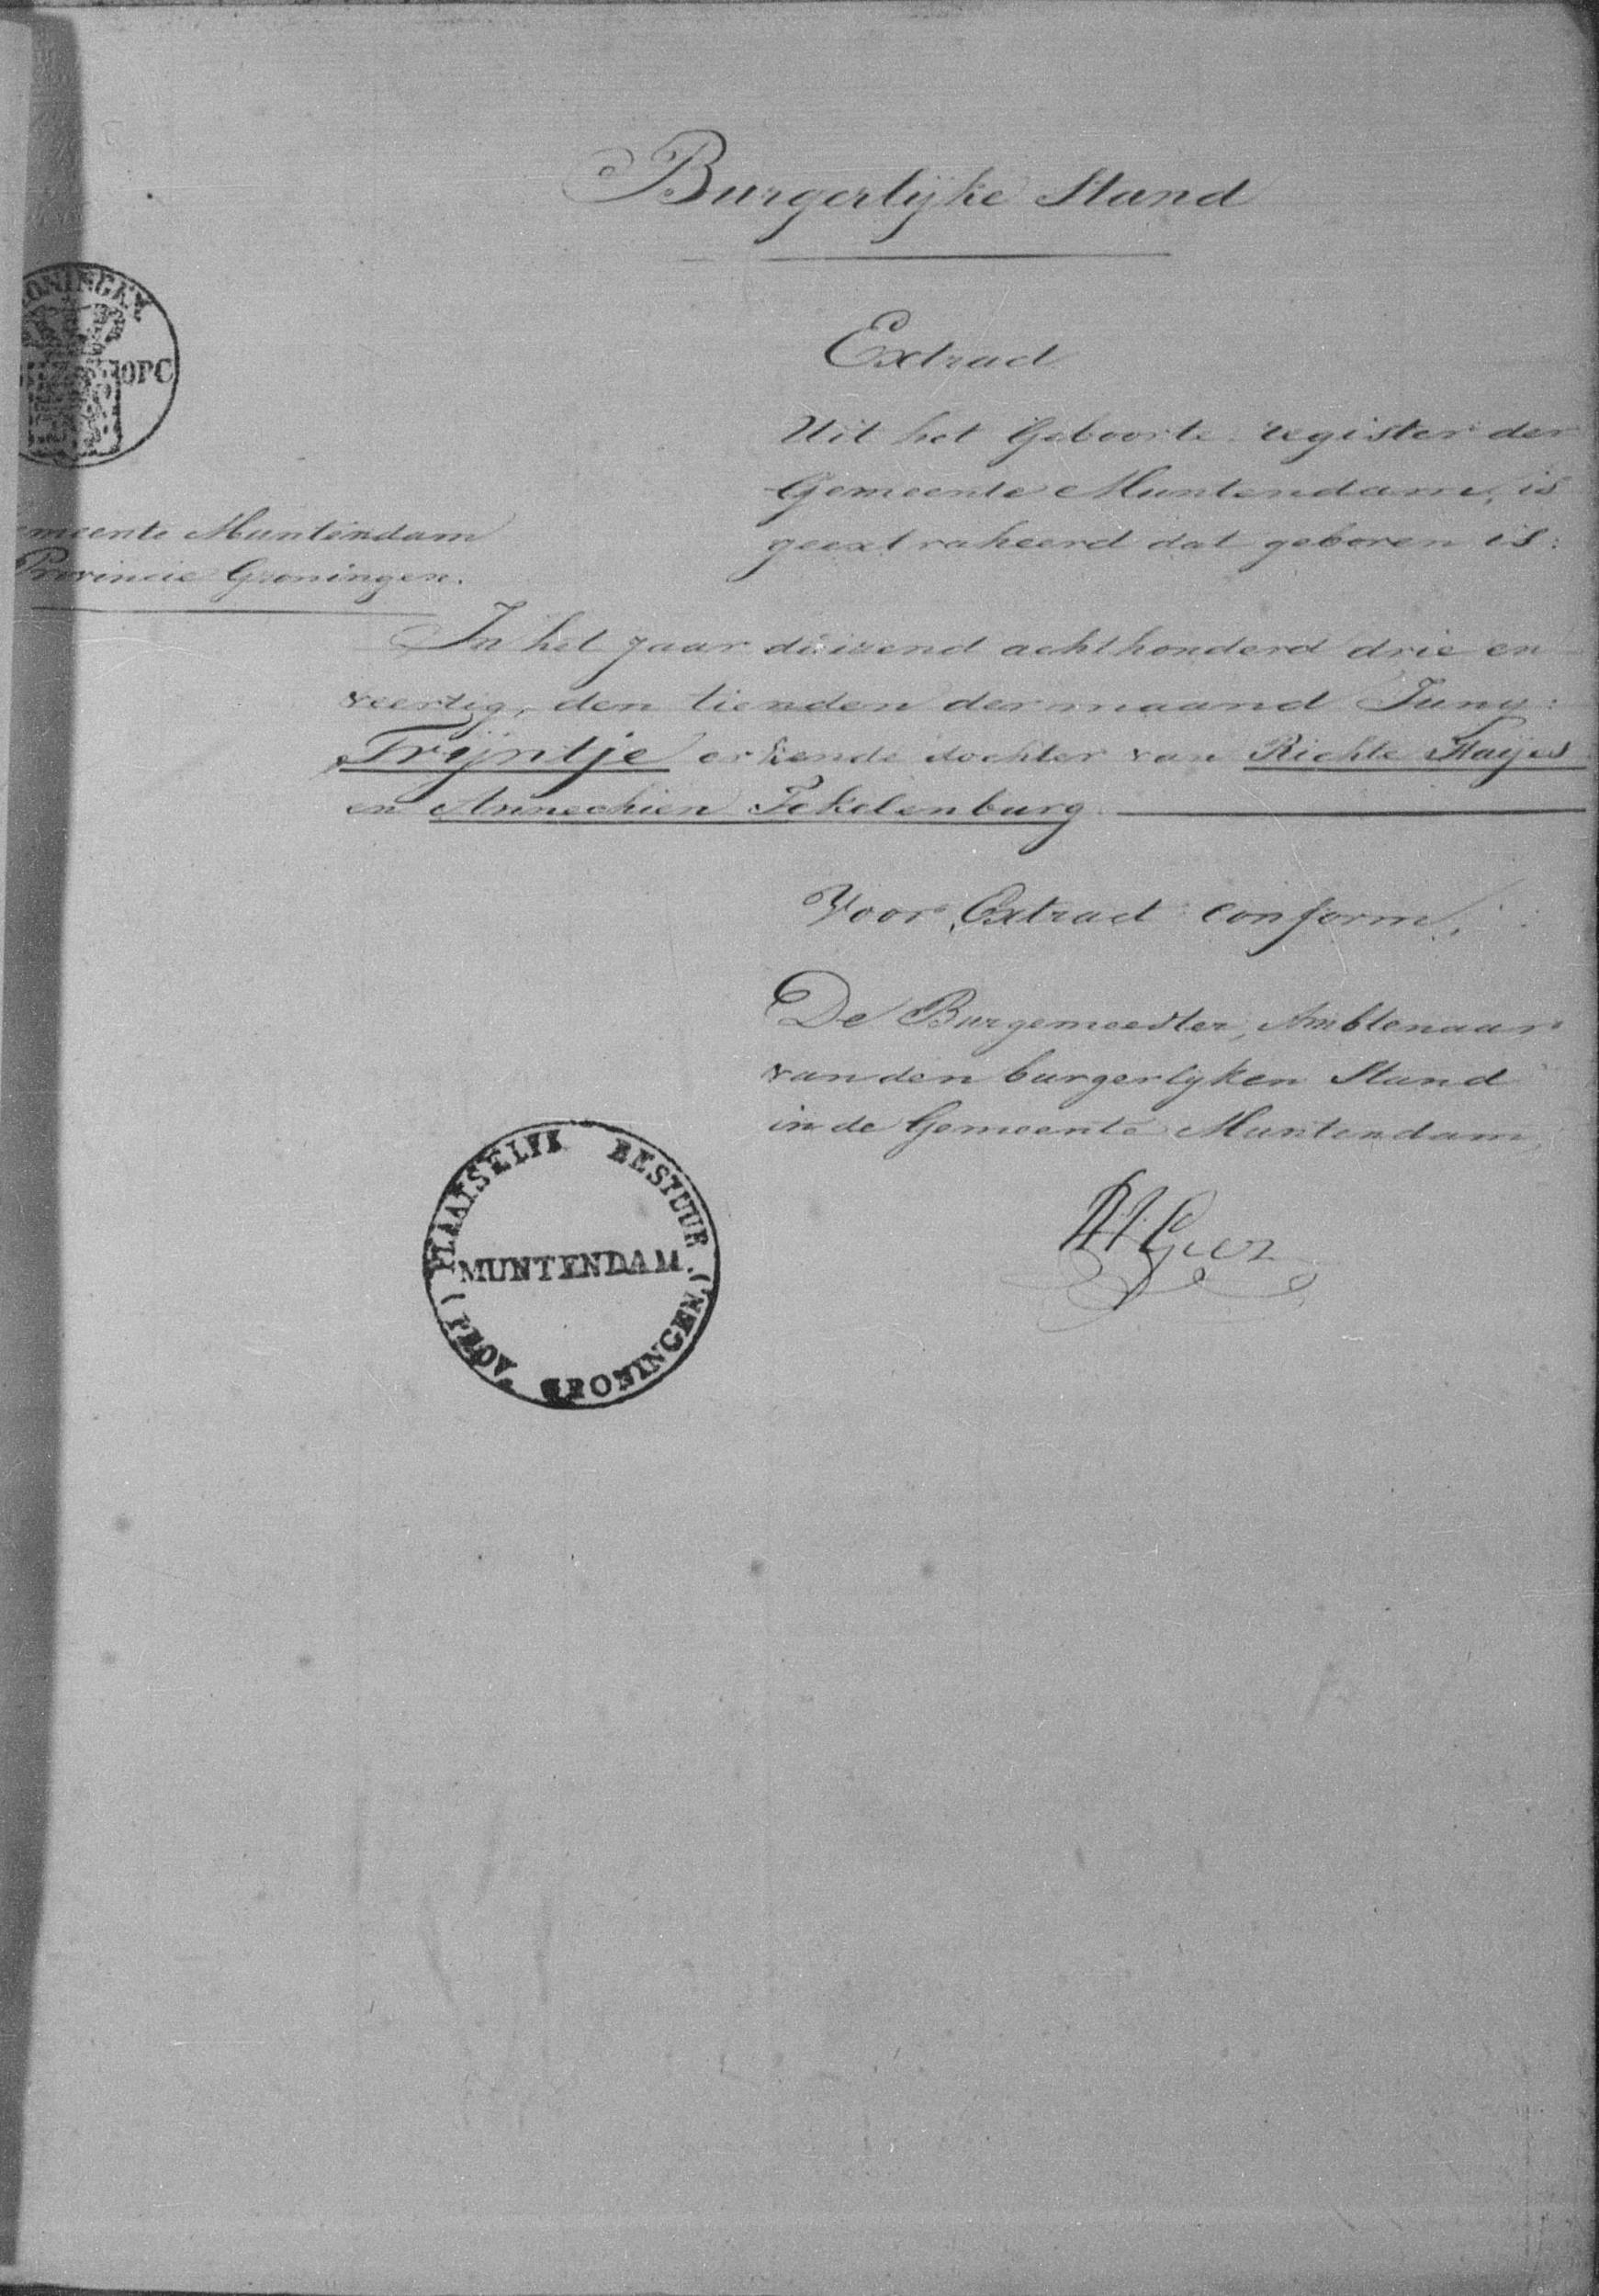 Burgerlijke Stand
Extract
Uit het Geboorte register der
Gemeente Muntendam, is
geextraheerd dat geboren is:
ONINGEN
OPC
emeente Muntendam
Provincie Groningen.
In het jaar duizend achthonderd drie en
veertig, den tienden der maand Juny:
Trijntje erkende dochter van Richte Haijes
en Annechien Fekelenburg
Voor Extract conform,
De Burgemeester, Ambtenaar
van den burgerlyken Stand
in de Gemeente Muntendam,
PLAATSELYK BESTUUR
MUNTENDAM.
(PROV. GRONINGEN)